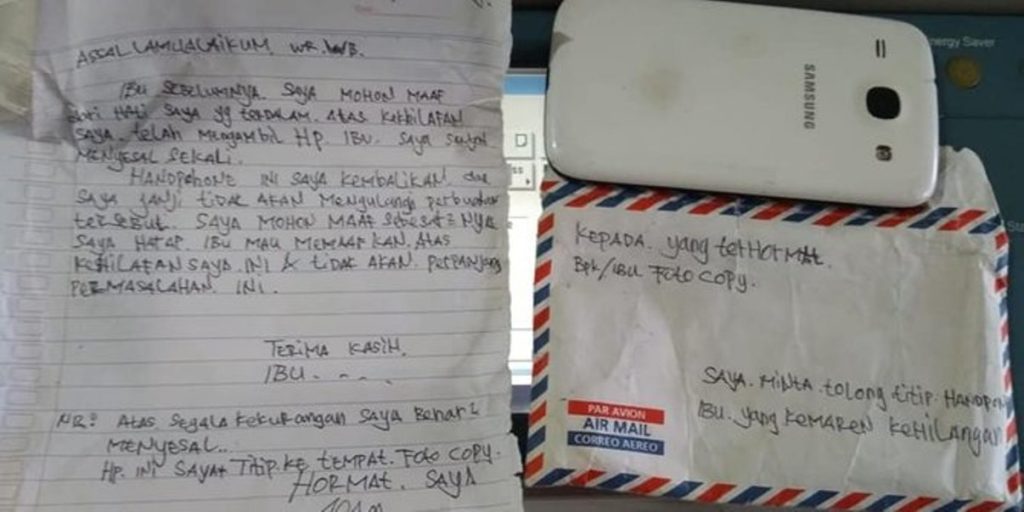 ASSALLAMUALAIKUM. WR. WB.
IBU SEBELUMNYA. SAYA MOHON MAAF
dari HATI SAYA yg terdalam. Atas KEKHILAFAN
SAYA. telah Mengambil HP. IBU. Saya
MENYESAL SEKALI.
HANDPHONE INI SAYA KEMBALIKAN. dan
SAYA JANJI tidak AKAN MENGULANGI perbuatan
tersebut. SAYA MOHON MAAF SEBESAR2NYA
SAYA HARAP. IBU MAU MEMAAFKAN. Atas
KEHILAFAN SAYA. INI & tidak AKAN. perpanjang
PERMASALAHAN. INI.
TERIMA KASIH.
IBU. - - -
NB: Atas SEGALA KEKURANGAN SAYA BENAR2
MENYESAL..
HP. INI SAYA TITIP KE. TEMPAT. FOTO COPY.
HORMAT. SAYA
SAMSUNG
Energy Saver
KEPADA. yang terHORMAt.
Bpk/IBU FOTO COPY.
SAYA. MINTA. tolong titip. HANDPON
IBU. yang KEMAREN KEHILANGAN
PAR AVION
AIR MAIL
CORREO AEREO